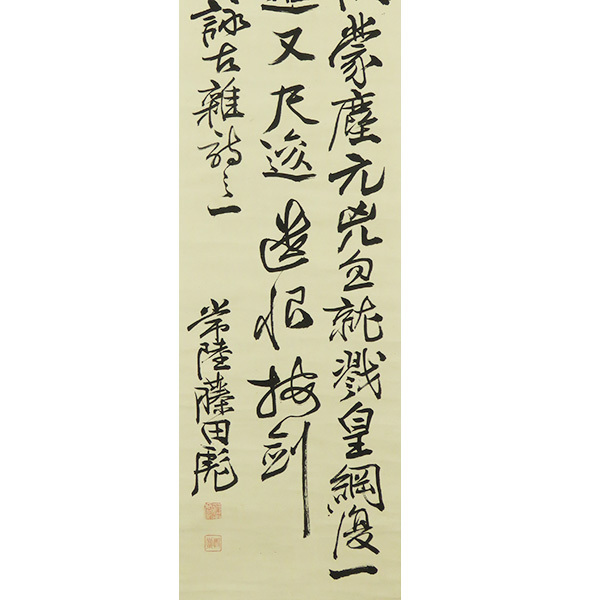 蒙塵元兇忽就戮皇綱復一
又尺遺恨按剣
詠古雜詩之一
常陸藤田彪